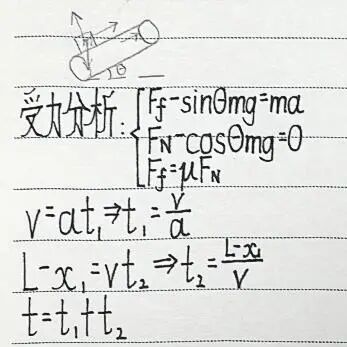 θ
受力分析: Ff-sinθmg=ma
FN-cosθmg=0
Ff=μFN
v=at₁⇒t₁=v/a
L-x₁=vt₂⇒t₂=(L-x₁)/v
t=t₁+t₂